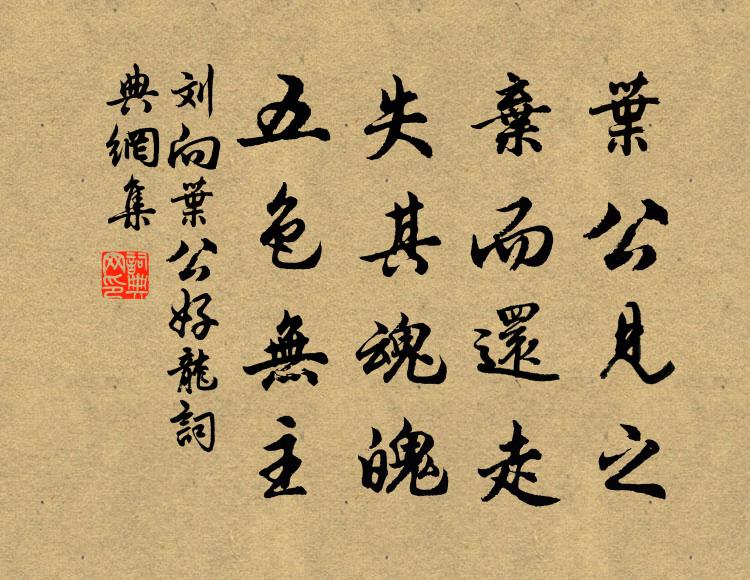 葉公見之
棄而還走
失其魂魄
五色無主
刘向葉公好龍詞
典網集
詞典
网印